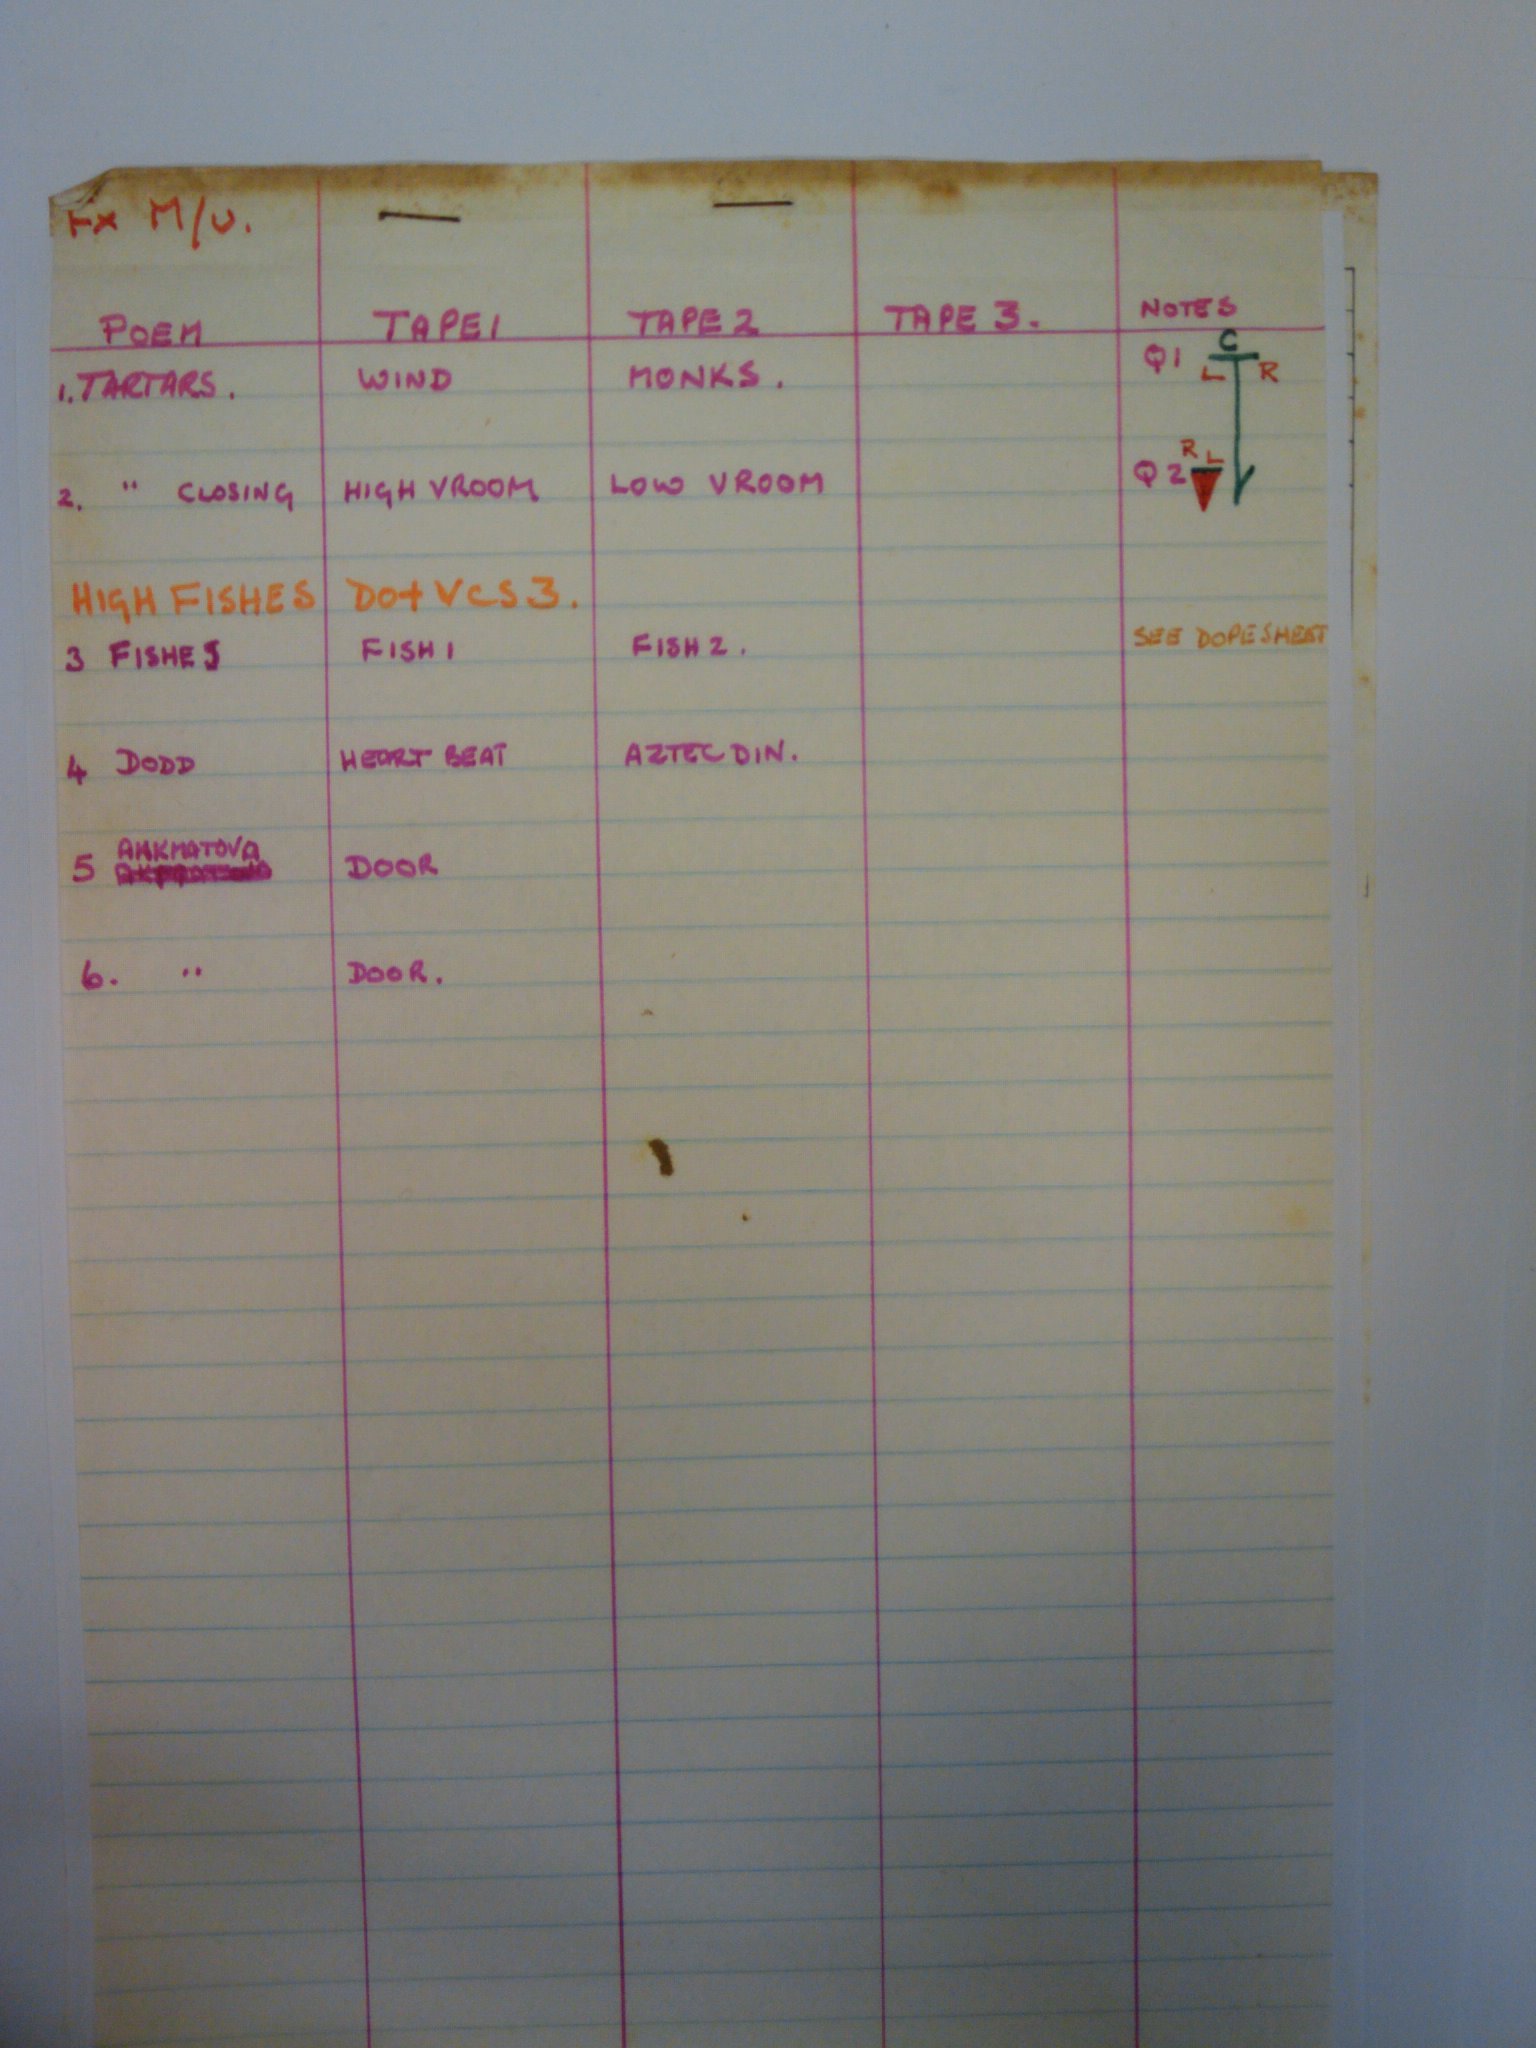 FX M/U.
POEM TAPE 1 TAPE 2 TAPE 3. NOTES
1. TARTARS. WIND MONKS. Q1 C L R
2. " CLOSING HIGH VROOM LOW VROOM Q2 R L
HIGH FISHES DOT VCS3.
3 FISHES FISH 1 FISH 2. SEE DOPESHEET
4 DODD HEART BEAT AZTEC DIN.
5 AHKMATOVA DOOR
6. " DOOR.